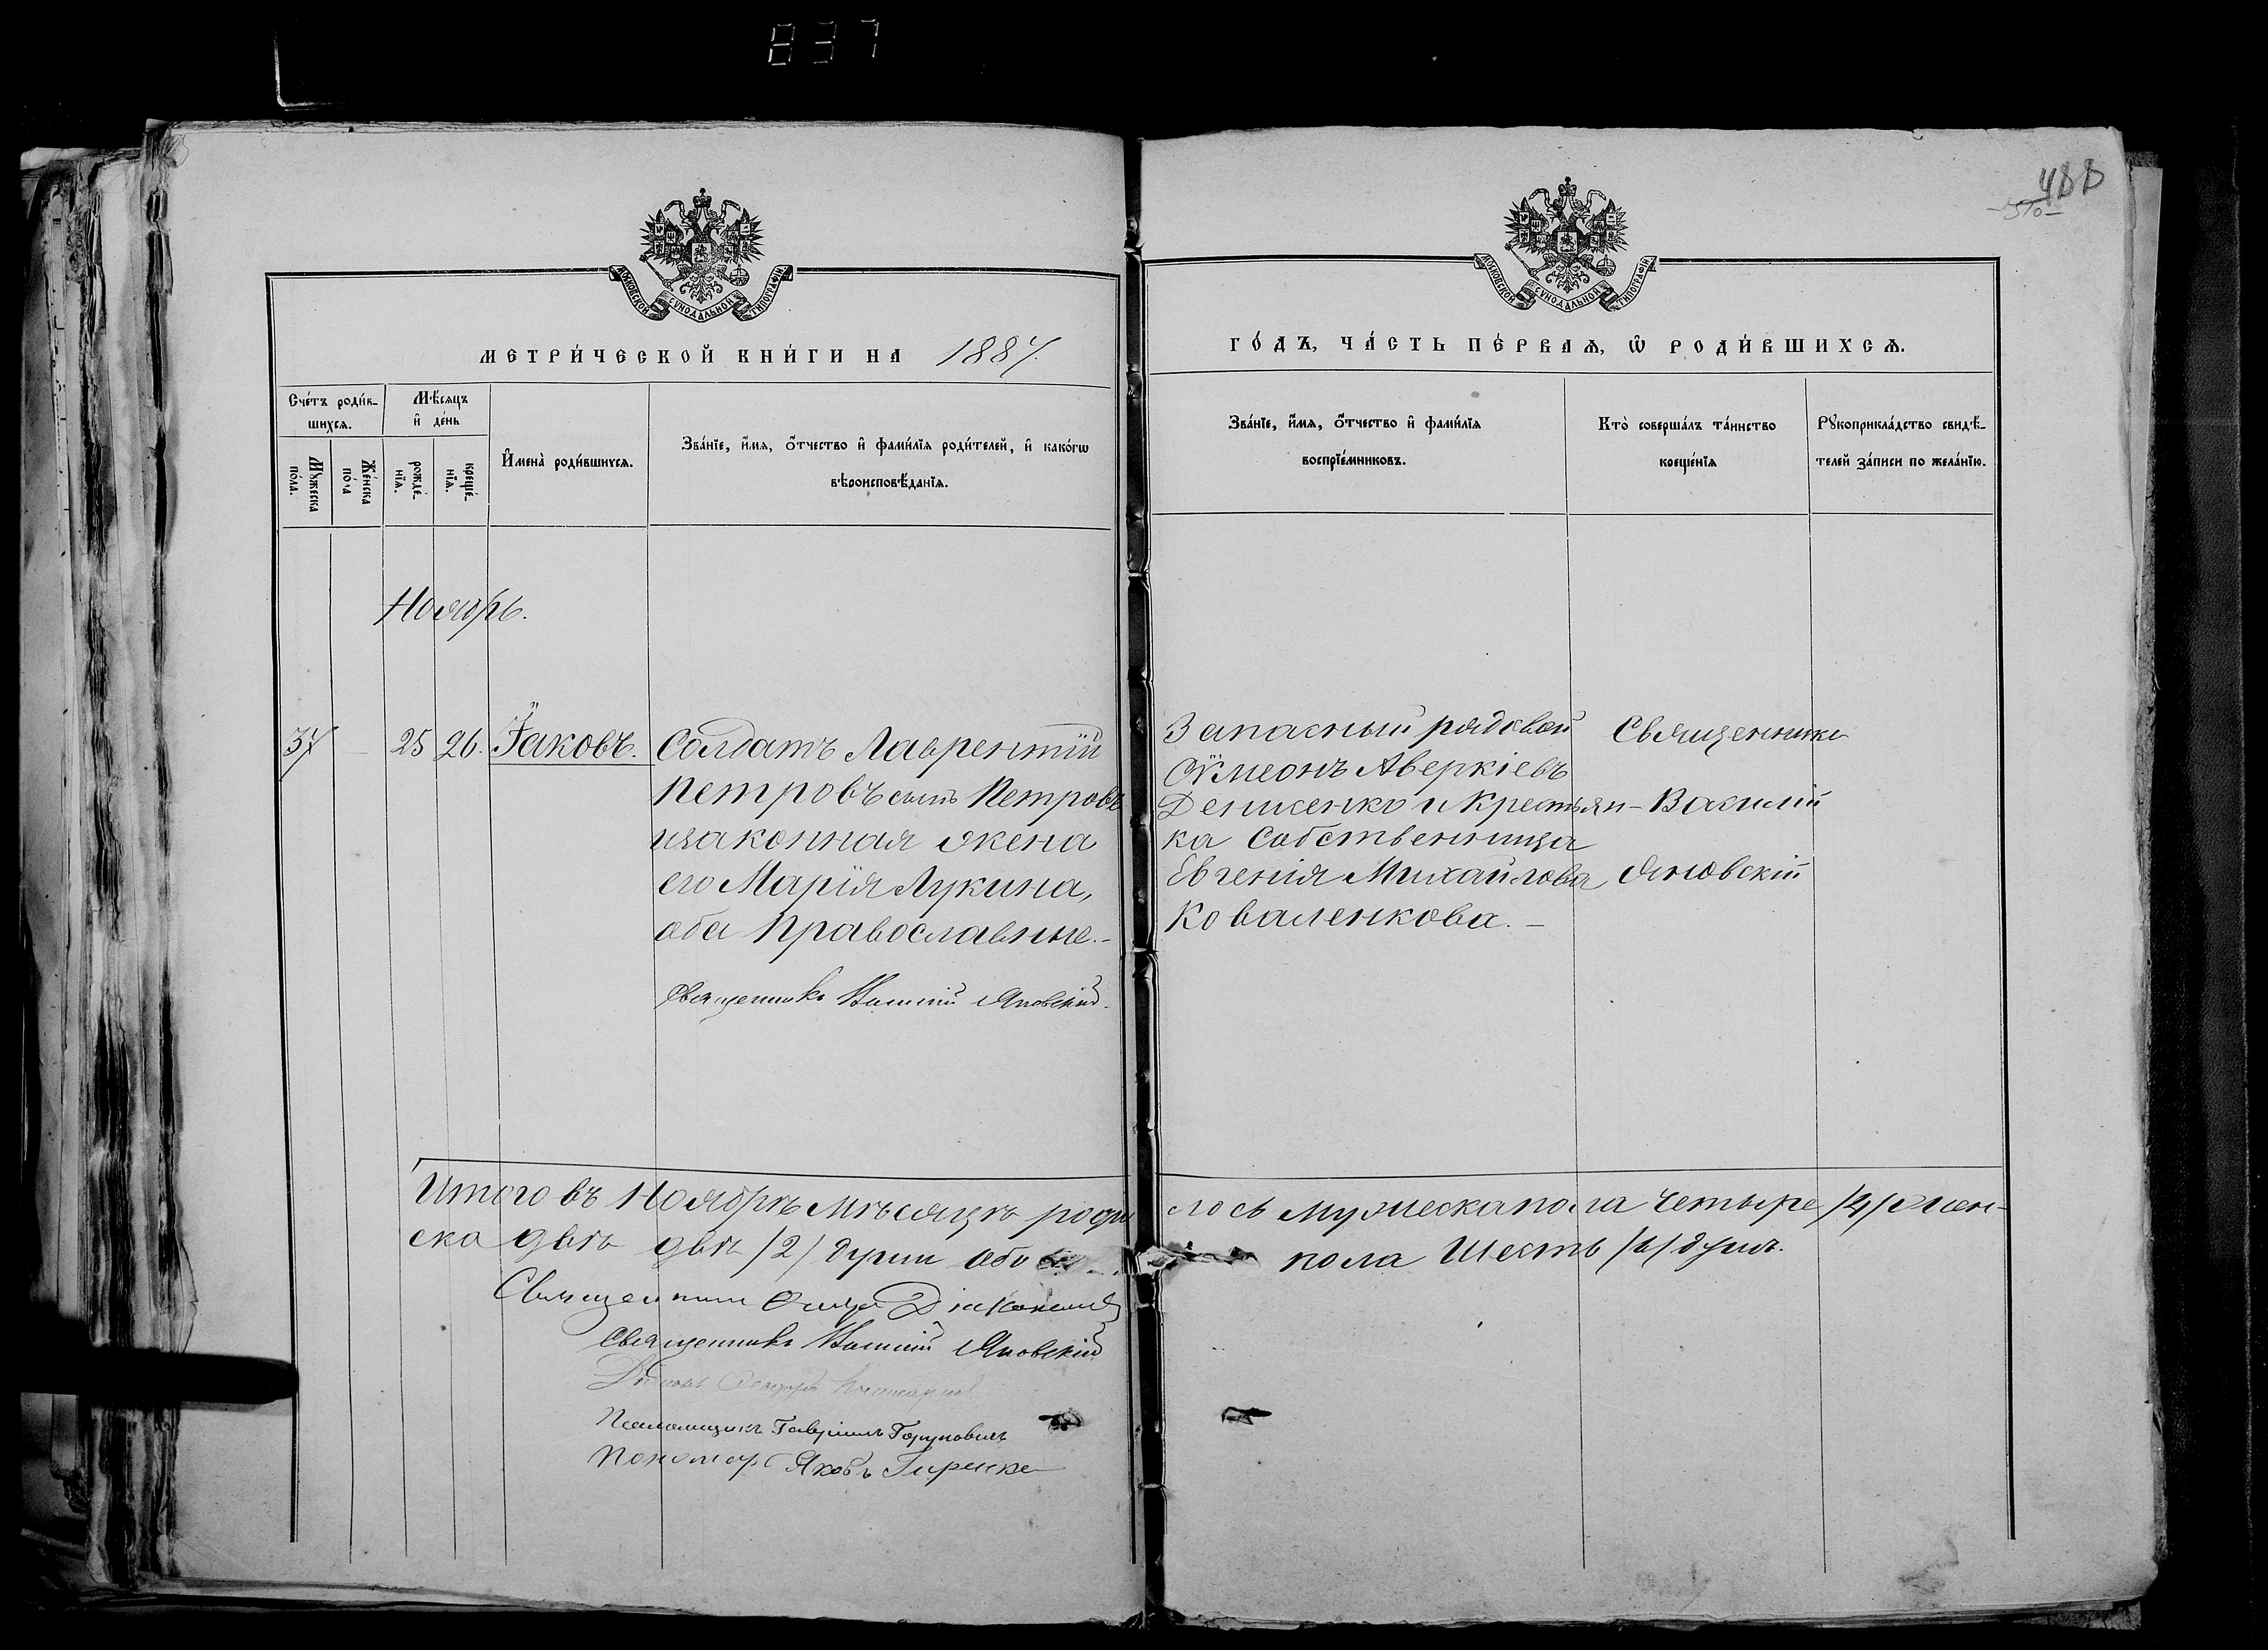 837
488
510
МОСКОВСКОЙ СѴНОДАЛЬНОЙ ТИПОГРАФІИ
МОСКОВСКОЙ СѴНОДАЛЬНОЙ ТИПОГРАФІИ
МЕТРИ́ЧЕСКОЙ КНИ́ГИ НА 1887.
ГО́ДЪ, ЧА́СТЬ ПЕ́РВАѦ, Ѽ РОДИ́ВШИХСѦ.
Сче́тъ роди́в-
шихсѧ.
Мѣ́сѧцъ
и҆ де́нь
Мꙋ́жеска
по́ла.
Же́нска
по́ла
рожде́-
нїѧ.
креще́-
нїѧ.
И҆мена̀ роди́вшихсѧ.
Зва́нїе, и҆́мѧ, ѻ҆́тчество и҆ фами́лїѧ роди́телей, и҆ како́гѡ
вѣроисповѣ́данїѧ.
Зва́нїе, и҆́мѧ, ѻ҆́тчество и҆ фами́лїѧ
воспрїе́мниковъ.
Кто̀ соверша́лъ та́инство
креще́нїѧ
Рꙋкоприкла́дство свидѣ́-
телей за́писи по жела́нїю.
Ноябрь.
37 25 26. Іаковъ. Солдатъ Лаврентій
Петровъ сынъ Петровъ
изаконная жена
его Марія Лукина,
оба Православные.-
Священникъ Василій Яновскій.
Запасный рядовой
Сѵмеонъ Аверкіевъ
Денисенко и Крестьян-
ка Собственница
Евгенія Михайлова
Коваленкова.-
Священникъ
Василій
Яновскій
Итого въ Ноябрѣ мѣсяцѣ родилось мужеска пола четыре /4/ жен-
ска двѣ двѣ /2/ души обо пола Шесть /6/ душъ.
Священникъ
Священникъ Василій Яновскій
Псаломщикъ Гавріилъ
Пономарь Яковъ